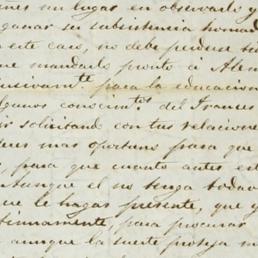 nes un lugar en observarlo y
ganar su subsistencia honrad
este caso, no debe perderse ti
que mandarlo pronto á Alem
usivamte. para la educacion
lgunos conocimtos. del Frances
ir solicitando con tus relacione
mas oportuno para que
, para que cuanto antes est
aunque el no tenga todav
que le hagas presente, que y
tinuamente, para procurar
aunque la suerte proteja m